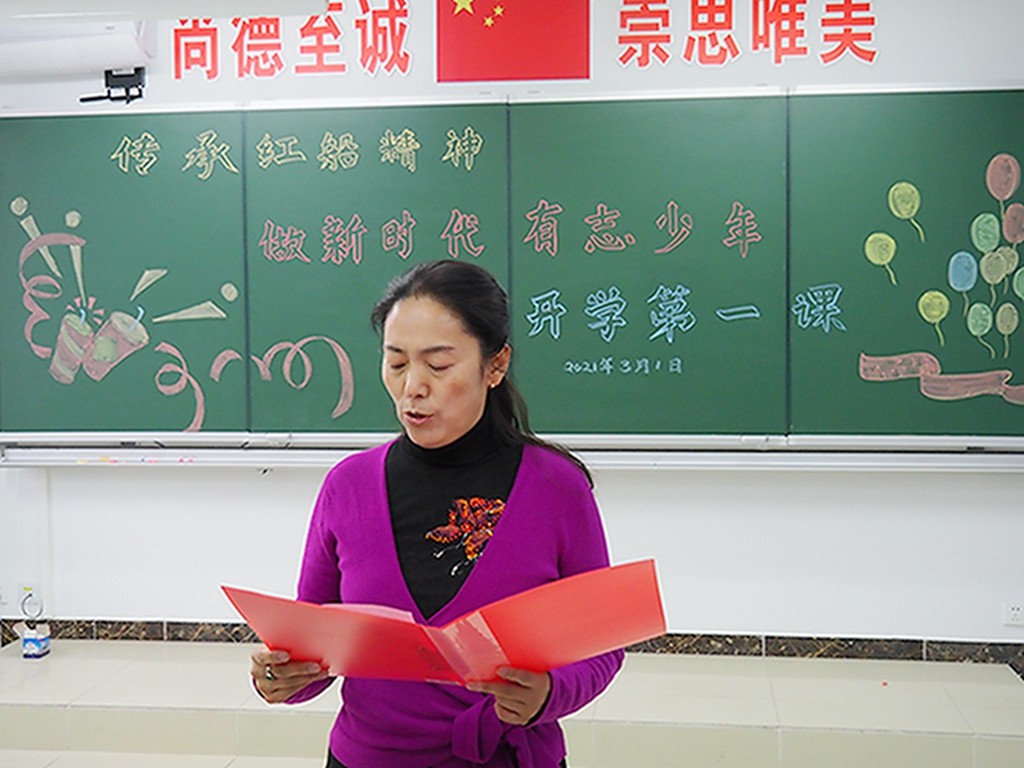 尚德至诚 崇思唯美
传承红船精神
做新时代 有志少年
开学第一课
2021年3月1日